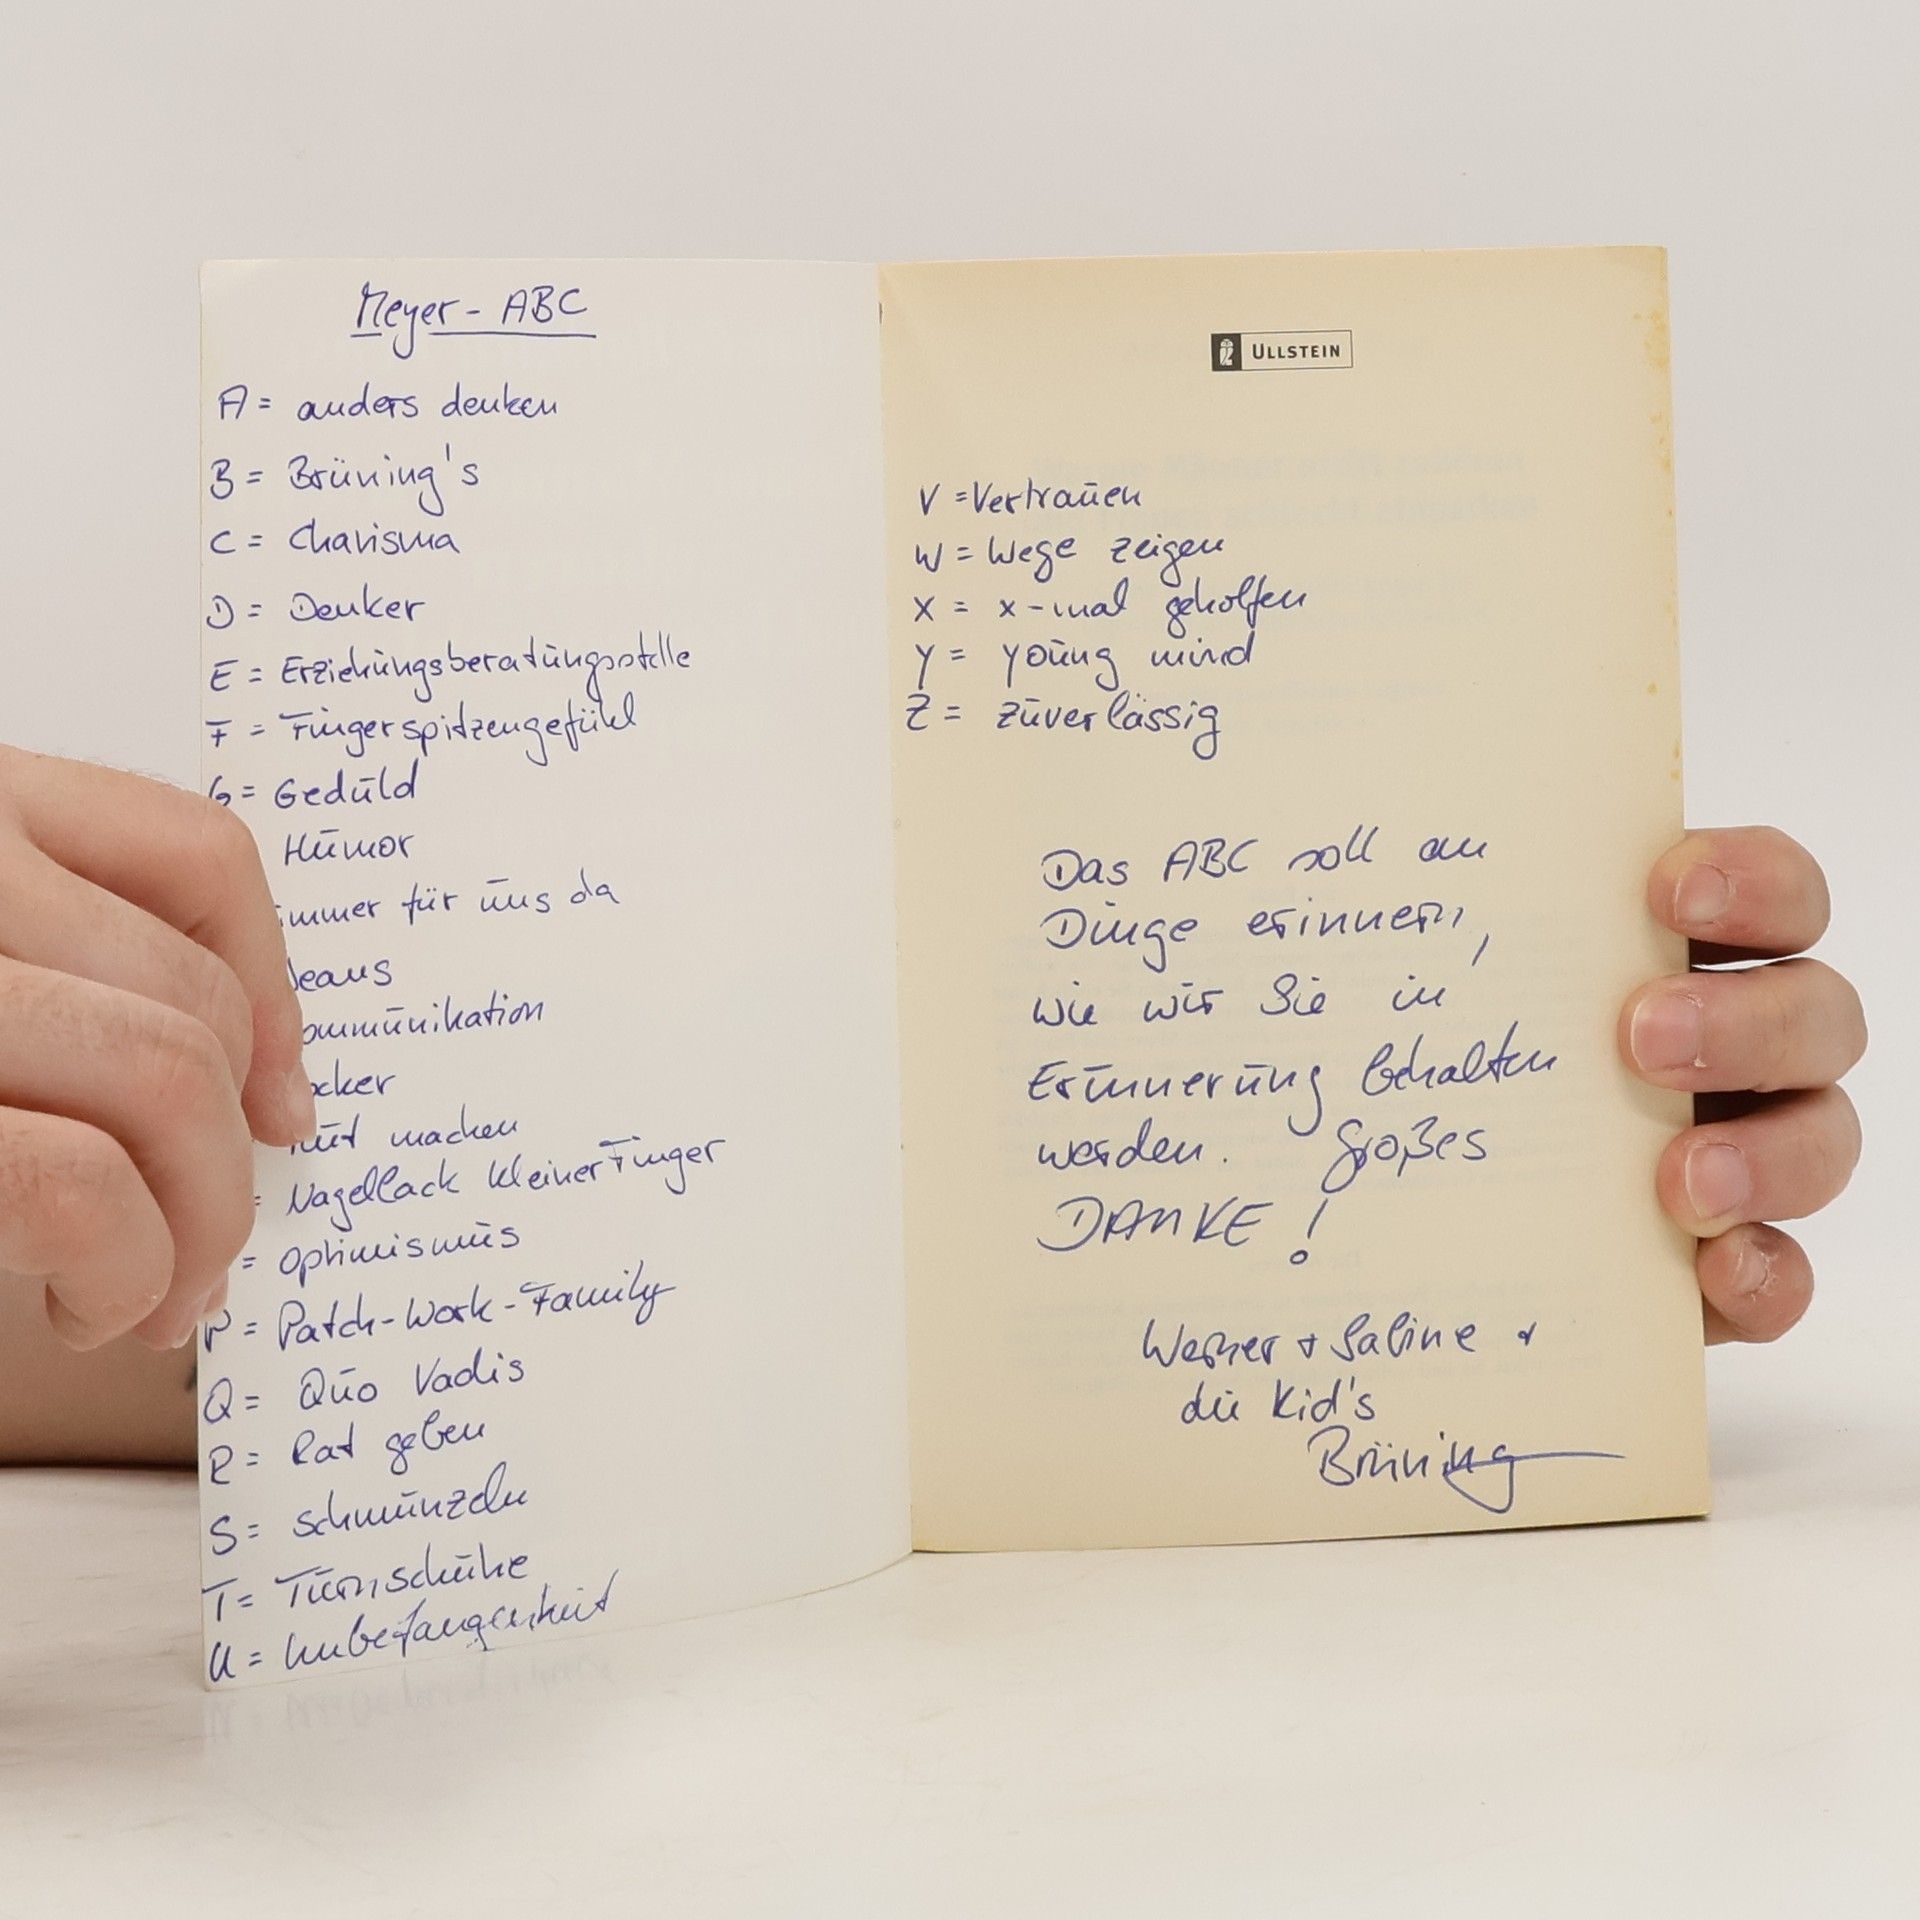 Meyer - ABC
A = anders denken
B = Brüning's
C = Charisma
D = Denker
E = Erziehungsberatungsstelle
F = Fingerspitzengefühl
G = Geduld
Humor
immer für uns da
Jeans
ommunikation
ocker
mut machen
= Nagellack kleiner Finger
= Optimismus
P = Patch-Work-Family
Q = Quo Vadis
R = Rat geben
S = schmunzeln
T = Turnschuhe
U = Unbefangenheit
ULLSTEIN
V = Vertrauen
W = Wege zeigen
X = x-mal geholfen
Y = young mind
Z = zuverlässig
Das ABC soll an
Dinge erinnern,
wie wir Sie in
Erinnerung behalten
werden. Großes
DANKE!
Werner + Sabine +
die Kid's
Brüning